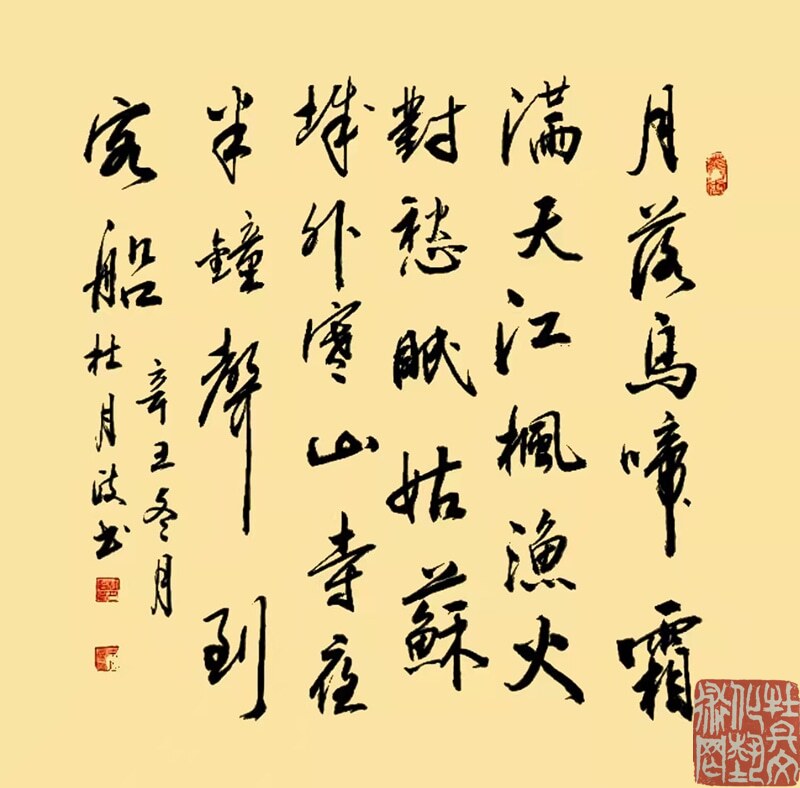 月落烏啼霜
滿天江楓漁火
對愁眠姑蘇
城外寒山寺夜
半鐘聲到
客船
辛丑冬月
杜月波书
杜兵文化藝術网